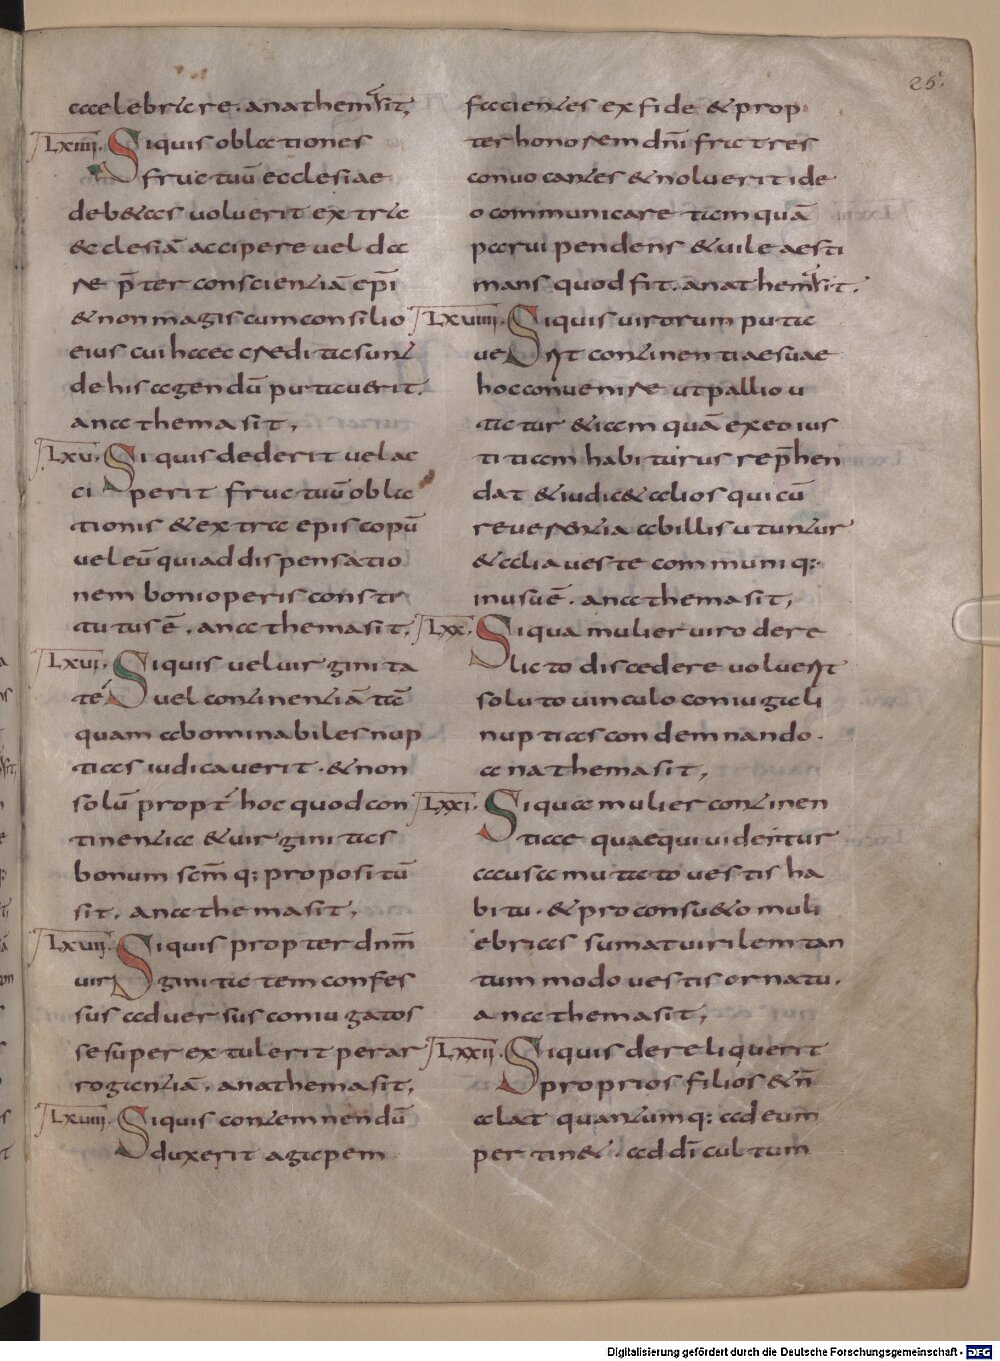 25.
celebrare. anathema sit,
LXIIII. Siquis oblationes
fructuū ecclesiae
debetas voluerit extra
ecclesiā accipere vel da
re p̄ter conscientiā ep̄i
& non magis cum consilio
eius cui haec credita sunt
de his agendū putaverit.
anathema sit,
LXV. Siquis dederit vel ac
ciperit fructuū obla
tionis & extra episcopū
vel eū qui ad dispensatio
nem boni operis consti
tutus ē. anathema sit.
LXVI. Siquis vel virginita
tē vel continentiā tā
quam abominabiles nup
tias iudicaverit. & non
solū propt̄ hoc quod con
tinentiae & virginitas
bonum scm̄ q; propositū
sit. anathema sit,
LXVII. Siquis propter dnm̄
virginitatem confes
sus adversus coniugatos
se super extulerit per ar
rogantiā. anathema sit,
LXVIII. Siquis contemnendū
duxerit agapem
facientes ex fide & prop
ter honorem dn̄i fratres
convocantes & noluerit ide
o communicare tam quā
parvi pendens & vile aesti
mans quod fit. anathema sit.
LXVIIII. Siquis virorum puta
verit continentiae suae
hoc convenire ut pallio u
tatur & iam quā ex eo ius
titiam habiturus rep̄hen
dat & iudicet alios qui cū
reverentia abillis utuntur
& alia veste communi q;
in usu ē. anathema sit,
LXX. Siqua mulier viro dere
licto discedere voluerit
soluto vinculo coniugali
nuptias condemnando.
anathema sit,
LXXI. Siqua mulier continen
tiae quae qui videntur
causa mutato vestis ha
bitu. & pro consueto muli
ebrias sumat virilem tan
tum modo vestis ornatu.
anathema sit,
LXXII. Siquis dereliquerit
proprios filios & n̄
alat quantum q; ad eum
pertinet. ad dī cultum
Digitalisierung gefördert durch die Deutsche Forschungsgemeinschaft - DFG